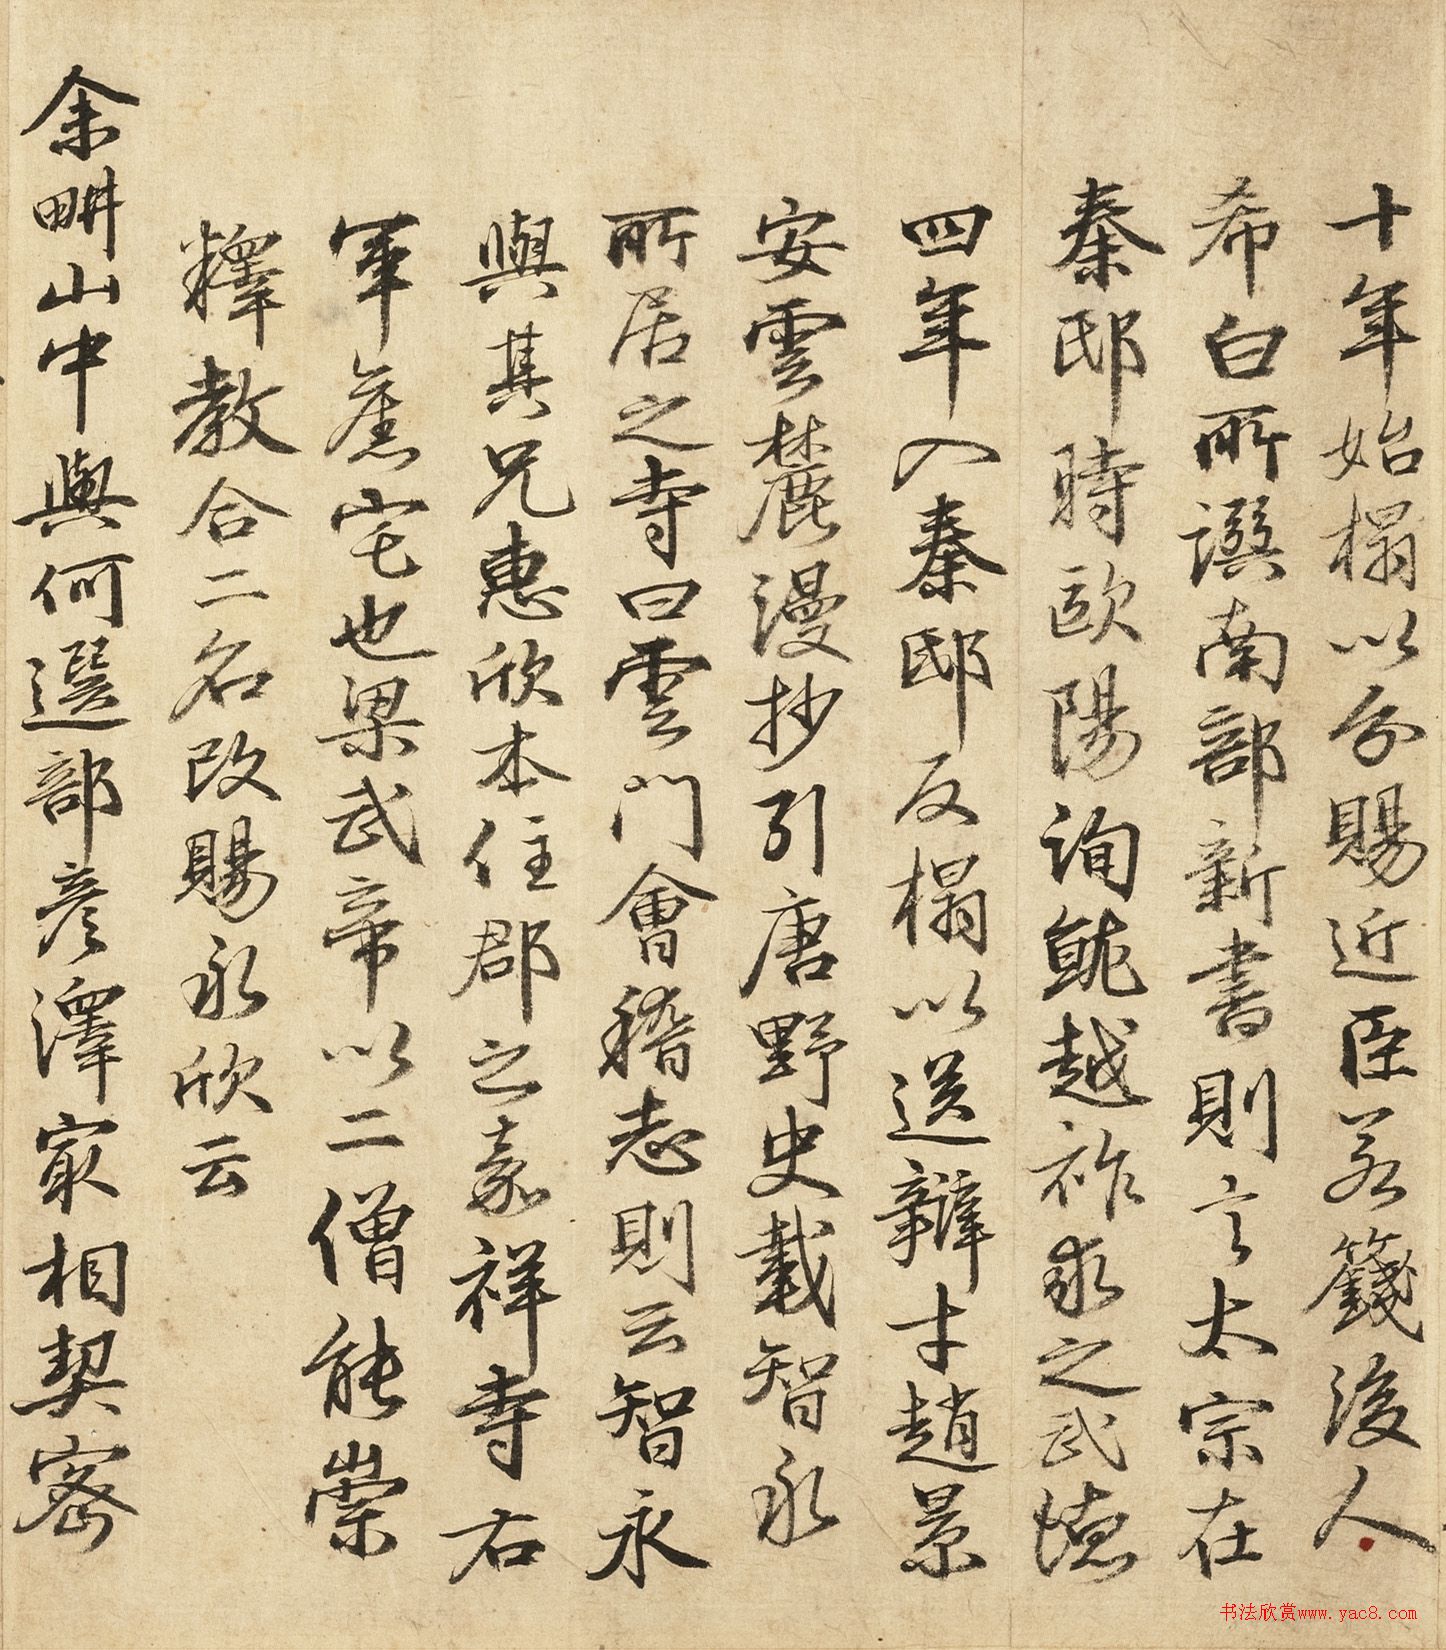 十年始榻以分賜近臣若籛後人
希白所譔南部新書則言太宗在
秦邸時歐陽詢就越祚求之武德
四年入秦邸反榻以送辯才趙景
安雲麓漫抄引唐野史載智永
所居之寺曰雲門會稽志則云智永
與其兄惠欣本住郡之嘉祥寺右
軍舊宅也梁武帝以二僧能崇
釋教合二名改賜永欣云
余畊山中與何選部彦澤最相契密
书法欣赏www.yac8.com